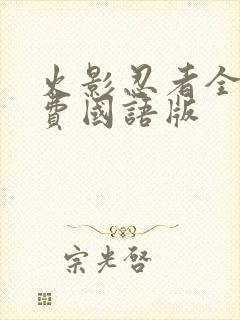 火影忍者全
費國語版
宗光啓